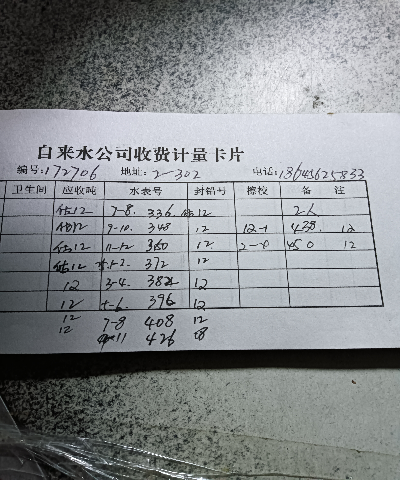 自来水公司收费计量卡片
编号:172706 地址:2-302 电话:13645625833
卫生间 应收吨 水表号 封铅号 擦校 备 注
估12 7-8. 336 估12 2人
估12 9-10. 348 12 12-1 438. 12
估12 11-12 360 12. 2-0 450 12
估12 1-2. 372 12
12 3-4. 384 12
12 5-6. 396 12
12 7-8 408 12
12 11 426 18